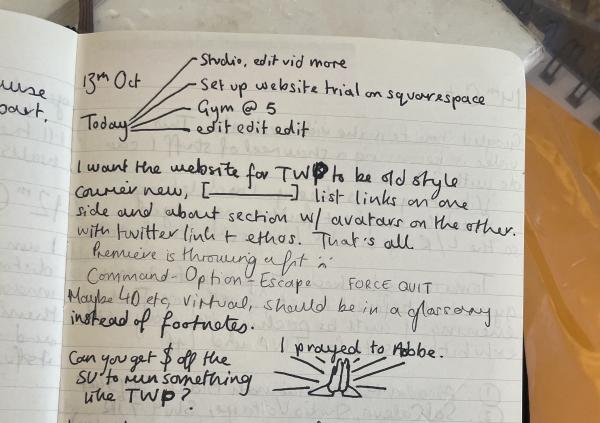 13th Oct
Today
Studio, edit vid more
Set up website trial on squarespace
Gym @ 5
edit edit edit
I want the website for TWP to be old style
courier new, [________] list links on one
side and about section w/ avatars on the other.
with twitter link + ethos. That's all
Premiere is throwing a fit :(
Command-Option-Escape FORCE QUIT
Maybe 4D etc, virtual, should be in a glossary
instead of footnotes.
Can you get $ off the
SU to run something
like TWP?
I prayed to Adobe.